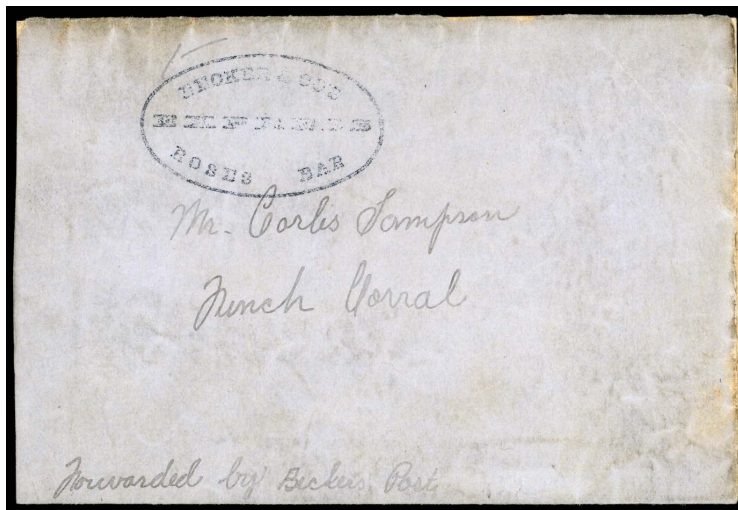 BECKER & COS
EXPRESS
ROSES BAR
Mr. Corlis Sampson
French Corral
Forwarded by Beckers Post